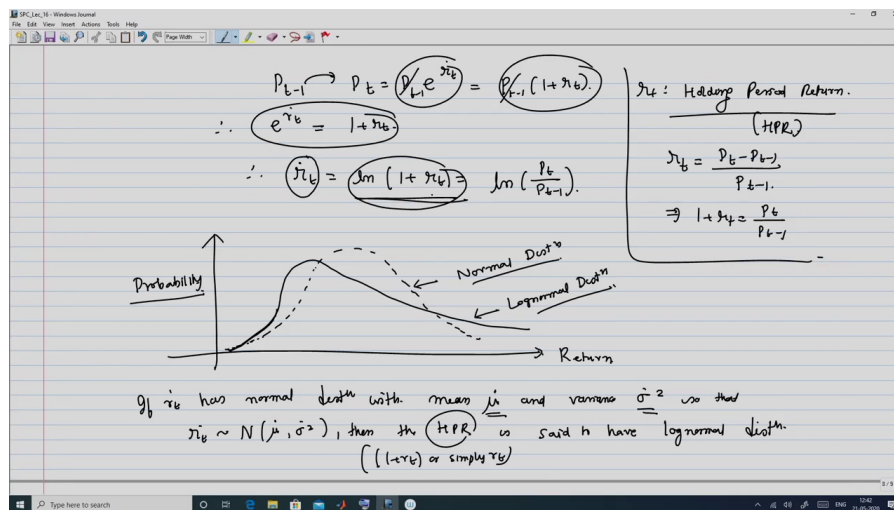 SPC_Lec_16 - Windows Journal
File Edit View Insert Actions Tools Help
Page Width
P_{t-1} → P_t = P_{t-1} e^{ṙ_t} = P_{t-1} (1 + r_t).
∴ e^{ṙ_t} = 1 + r_t.
∴ ṙ_t = ln (1 + r_t) = ln (P_t / P_{t-1}).
r_t : Holding Period Return.
(HPR)
r_t = (P_t - P_{t-1}) / P_{t-1}.
⇒ 1 + r_t = P_t / P_{t-1}
Probability
Normal Distⁿ
Lognormal Distⁿ
Return
If ṙ_t has normal distn with mean μ̇ and variance σ̇² so that
ṙ_t ~ N(μ̇, σ̇²), then the HPR is said to have lognormal distn.
((1+r_t) or simply r_t)
8 / 9
Type here to search
ENG
12:42
21-05-2020